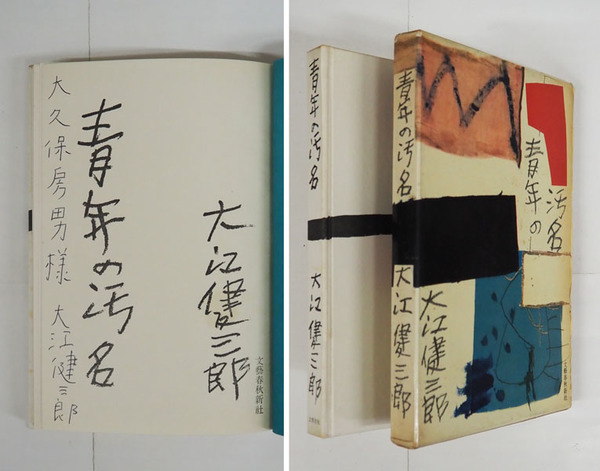 大久保房男様
大江健三郎
青年の汚名
大江健三郎
文藝春秋新社
青年の汚名
大江健三郎
青年の汚名
大江健三郎
青年の
汚名
大江健三郎
文藝春秋新社